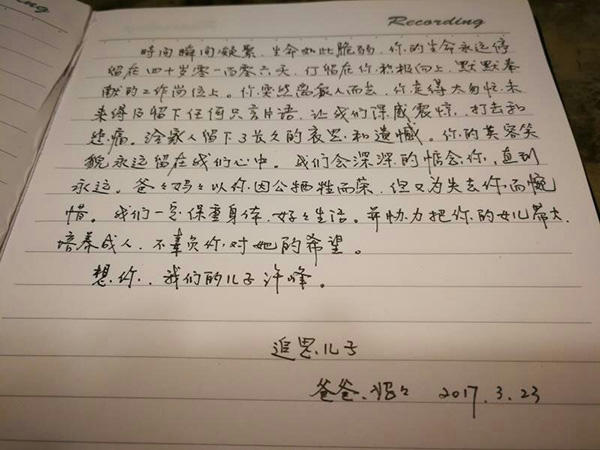 Recording
时间瞬间凝聚,生命如此脆弱,你的生命永远停
留在四十岁零一百零六天,仃留在你积极向上、默默奉
献的工作岗位上。你突然离家人而去,你走得太匆忙,未
来得及留下任何只言片语,让我们深感震惊、打击和
悲痛。给家人留下了长久的哀思和遗憾。你的英容笑
貌永远留在我们心中。我们会深深的惦念你,直到
永远。爸々妈々以你因公牺牲而荣,但又为失去你而惋
惜。我们一定保重身体,好々生活。并协力把你的女儿带大
培养成人,不辜负你对她的希望。
想你,我们的儿子许峰。
追思儿子
爸爸、妈々 2017.3.23